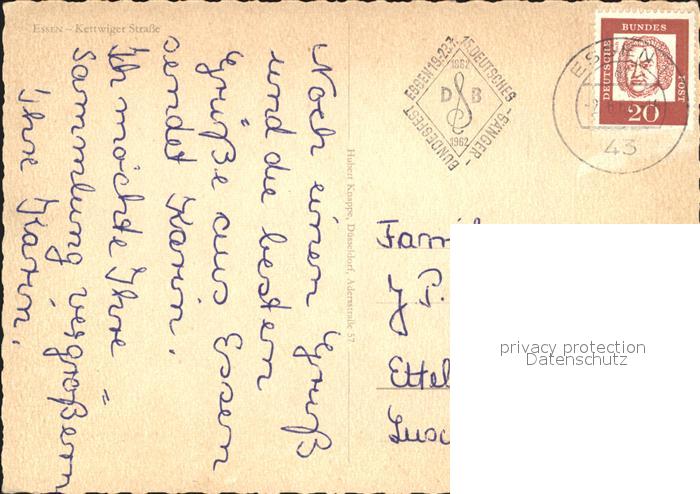 ESSEN – Kettwiger Straße
Noch einen Gruß
und die besten
Grüße aus Essen
sendet Karin.
Ich möchte Ihre
Sammlung vergrößern
Ihre Karin.
Hubert Knappe, Düsseldorf, Adersstraße 57
ESSEN 19.-22.7. 15. DEUTSCHES
SÄNGER-
BUNDESFEST
1862
D S B
1962
ESSEN
43
DEUTSCHE
BUNDES
POST
20
Fami
P.
Ettel
privacy protection
Datenschutz